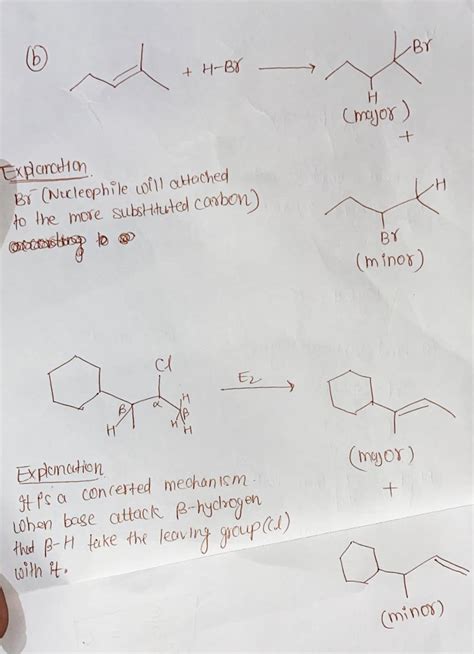 (b)
+ H-Br
Br
H
(major)
+
Explanation.
Br⁻ (Nucleophile will attached
to the more substituted carbon)
H
Br
(minor)
Cl
E2
β
α
H
H
β
H
H
(major)
+
Explanation.
It is a concerted mechanism.
When base attack β-hydrogen
that β-H take the leaving group (Cl)
with it.
(minor)